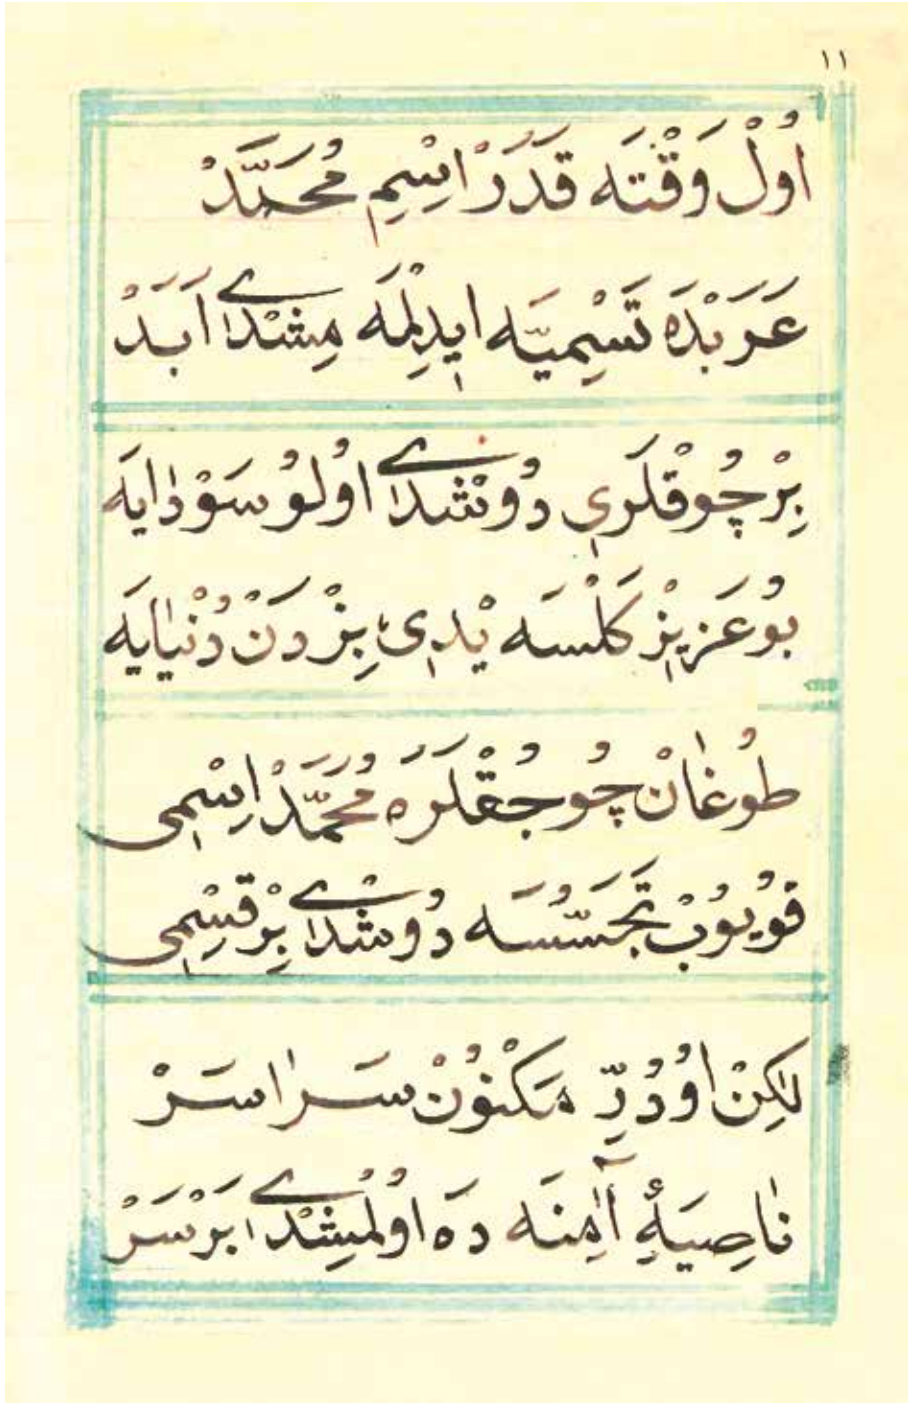 ١١
اُولْ وَقْتَه قَدَرْ اِسْمِ مُحَمَّدْ
عَرَبْدَه تَسْمِيَّه ايدِلْمَه مِشْدِى اَبَدْ
بِرْ چُوقْلَرِى دُوشْدِى اُولُو سَوْدَايَه
بُو عَزِيزْ كَلْسَه يْدِى بِزْدَنْ دُنْيَايَه
طُوغَانْ چُوجُقْلَرَه مُحَمَّدْ اِسْمِى
قُويُوبْ تَجَسُّسَه دُوشْدِى بِرْ قِسْمِى
لٰكِنْ اُو دُرِّ مَكْنُونْ سَرَاسَرْ
نَاصِيَهٔ آمِنَه دَه اُولْمِشْدِى بَرْسَرْ